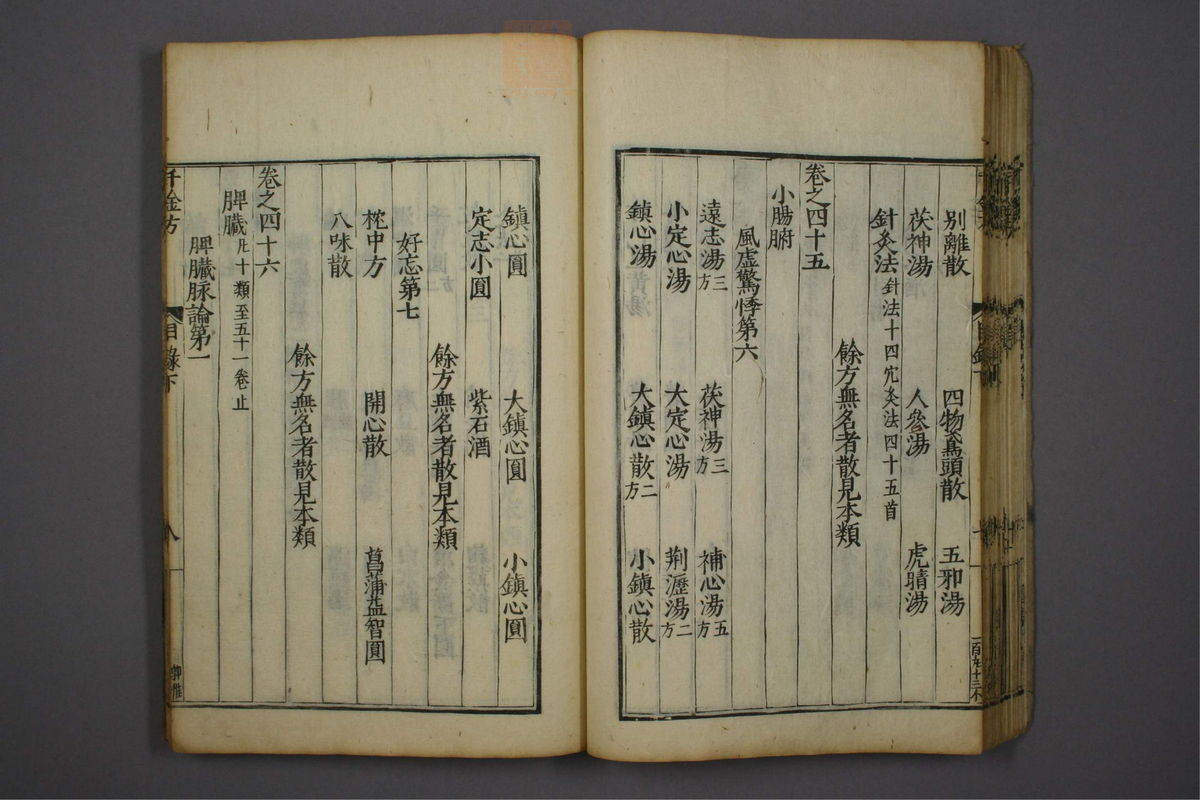 別離散 四物鳶頭散 五邪湯
茯神湯 人參湯 虎睛湯
針灸法 針法十四穴灸法四十五首
餘方無名者散見本類
卷之四十五
小腸腑
風虛驚悸第六
遠志湯三方 茯神湯三方 補心湯五方
小定心湯 大定心湯 荆瀝湯二方
鎮心湯 大鎮心散二方 小鎮心散
鎮心圓 大鎮心圓 小鎮心圓
定志小圓 紫石酒
餘方無名者散見本類
好忘第七
枕中方 開心散 菖蒲益智圓
八味散
餘方無名者散見本類
卷之四十六
脾臟 凡十類至五十一卷止
脾臟脉論第一
千金方 目錄下 八